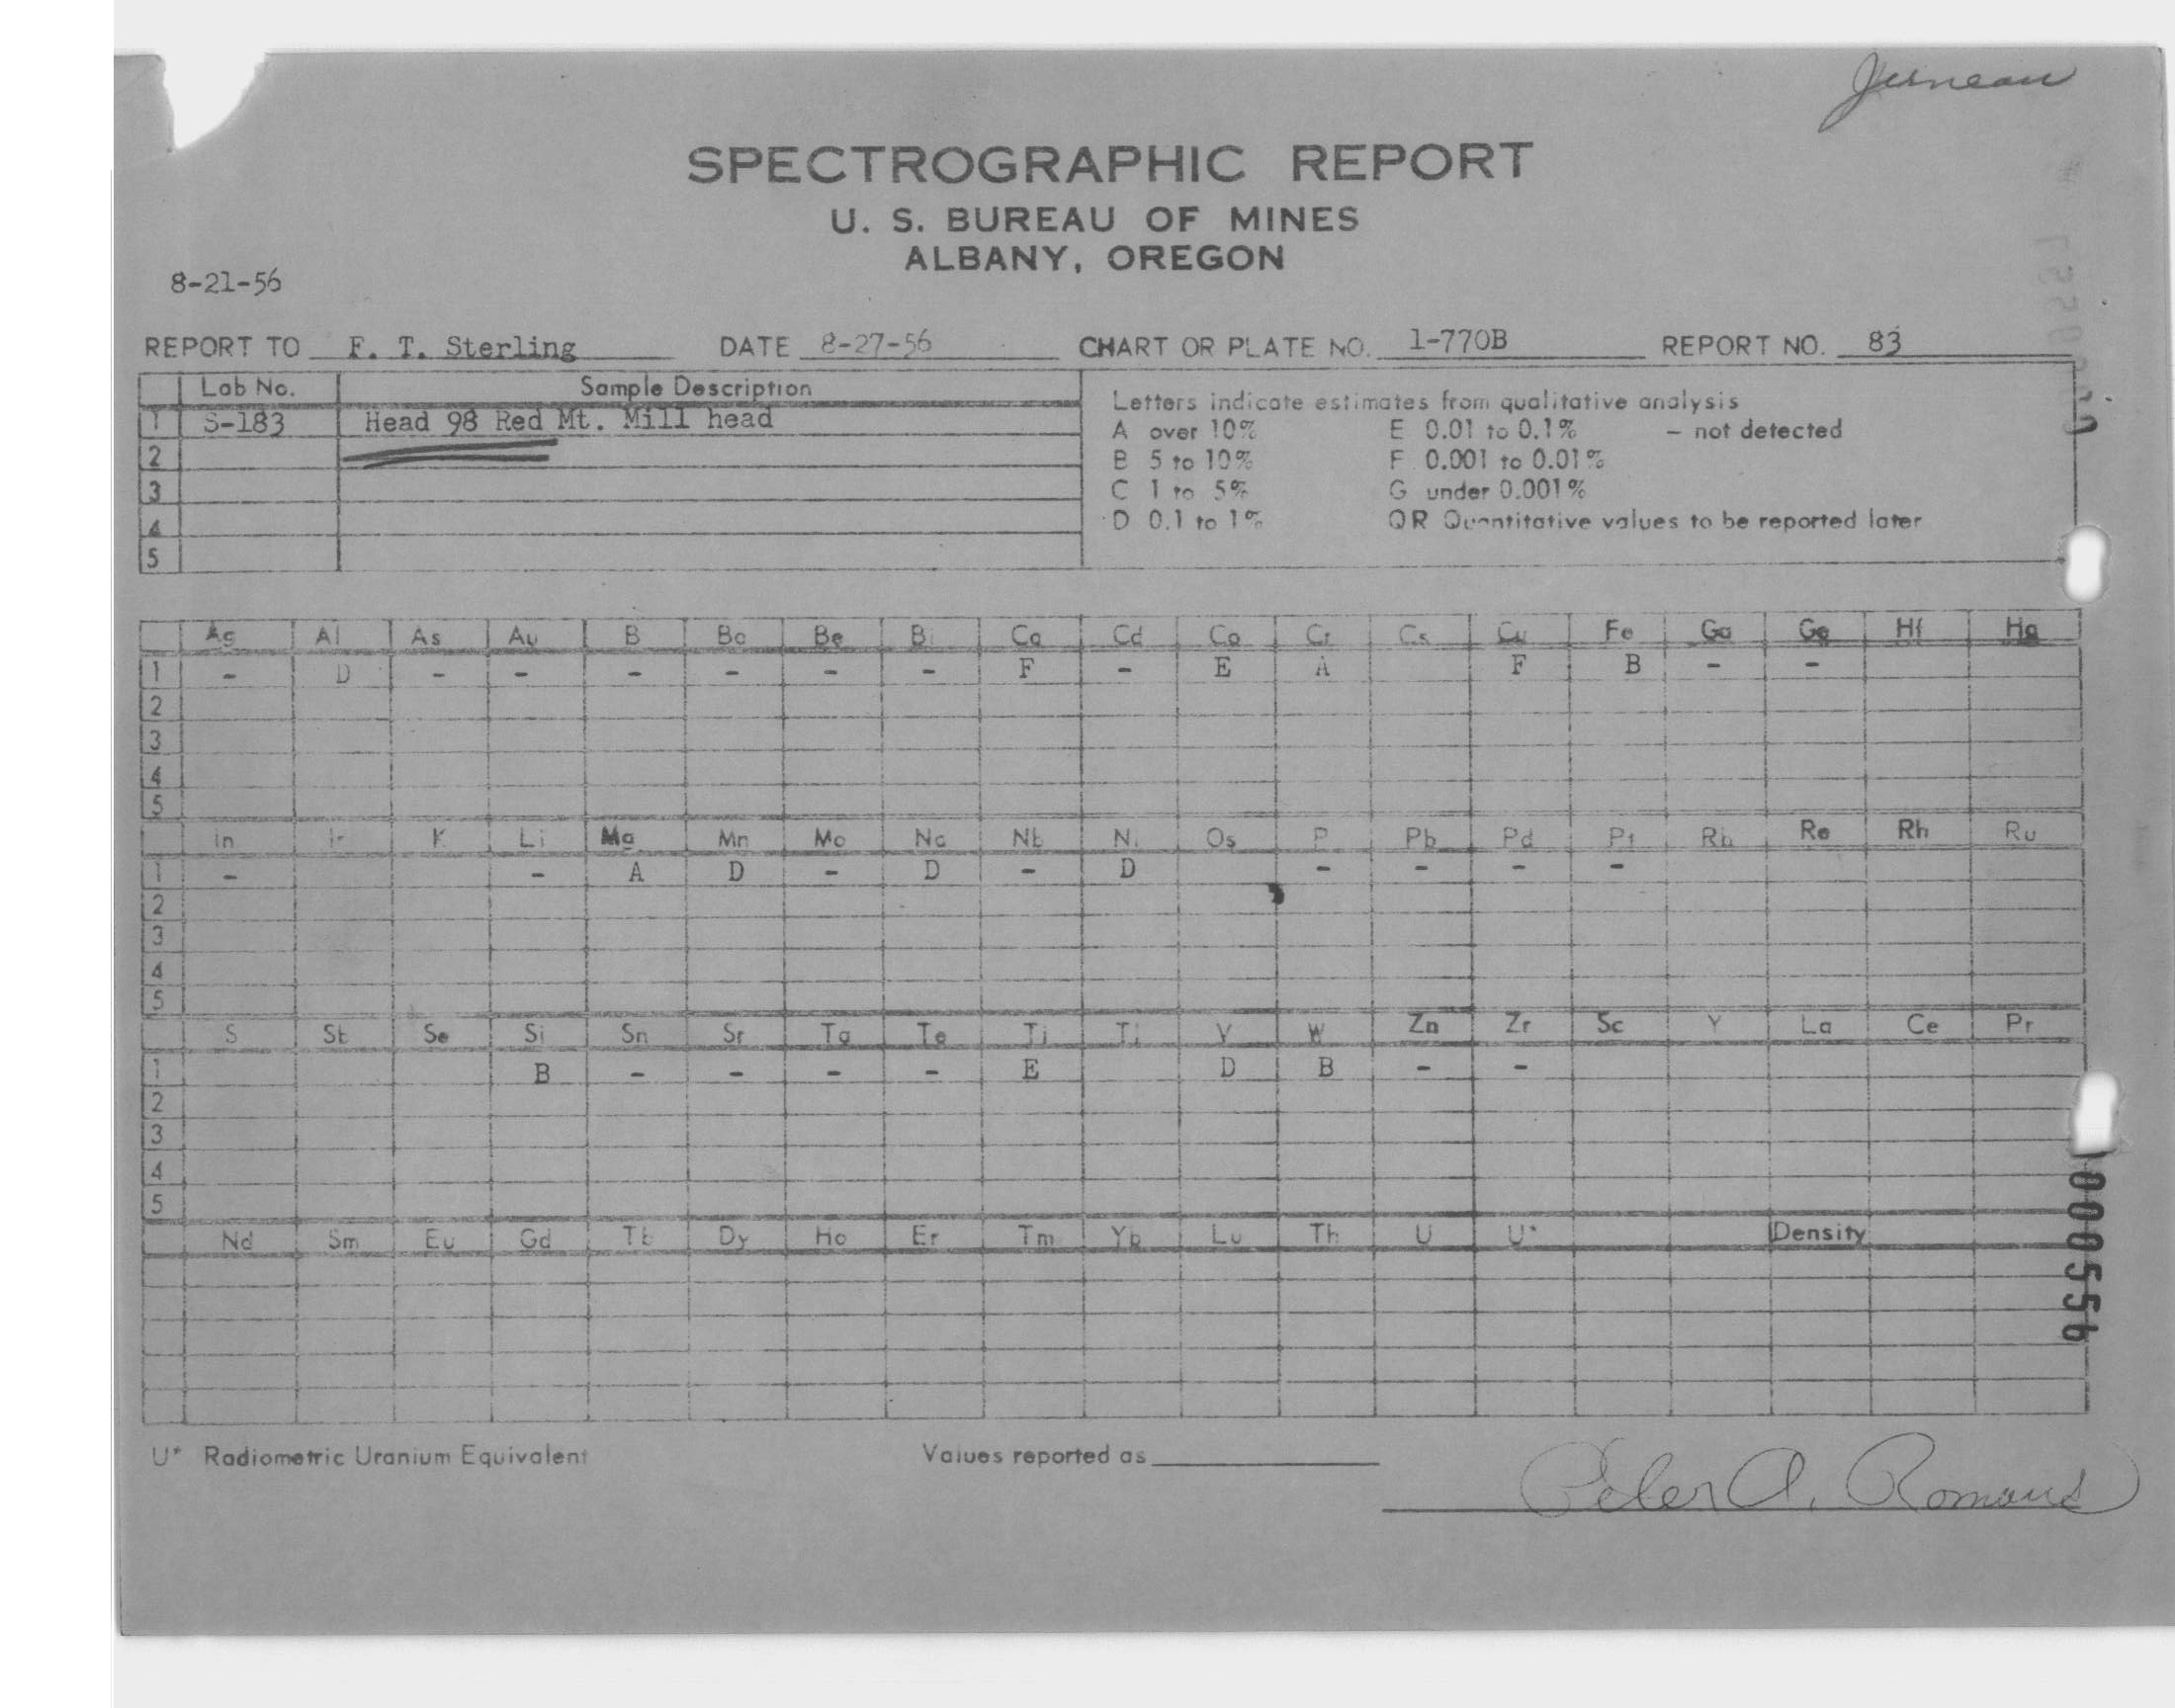 Juneau
SPECTROGRAPHIC REPORT
U. S. BUREAU OF MINES
ALBANY, OREGON
8-21-56
REPORT TO F. T. Sterling DATE 8-27-56 CHART OR PLATE NO. 1-770B REPORT NO. 83
Lab No. Sample Description
1 S-183 Head 98 Red Mt. Mill head
2
3
4
5
Letters indicate estimates from qualitative analysis
A over 10% E 0.01 to 0.1% - not detected
B 5 to 10% F 0.001 to 0.01%
C 1 to 5% G under 0.001%
D 0.1 to 1% QR Quantitative values to be reported later
Ag Al As Au B Ba Be Bi Ca Cd Co Cr Cs Cu Fe Ga Ge Hf Hg
1 - D - - - - - - F - E A F B - -
2
3
4
5
In Ir K Li Mg Mn Mo Na Nb Ni Os P Pb Pd Pt Rb Re Rh Ru
1 - - A D - D - D - - - -
2
3
4
5
S Sb Se Si Sn Sr Ta Te Ti Tl V W Zn Zr Sc Y La Ce Pr
1 B - - - - E D B - -
2
3
4
5
Nd Sm Eu Gd Tb Dy Ho Er Tm Yb Lu Th U U* Density
U* Radiometric Uranium Equivalent Values reported as
Peter A. Romans